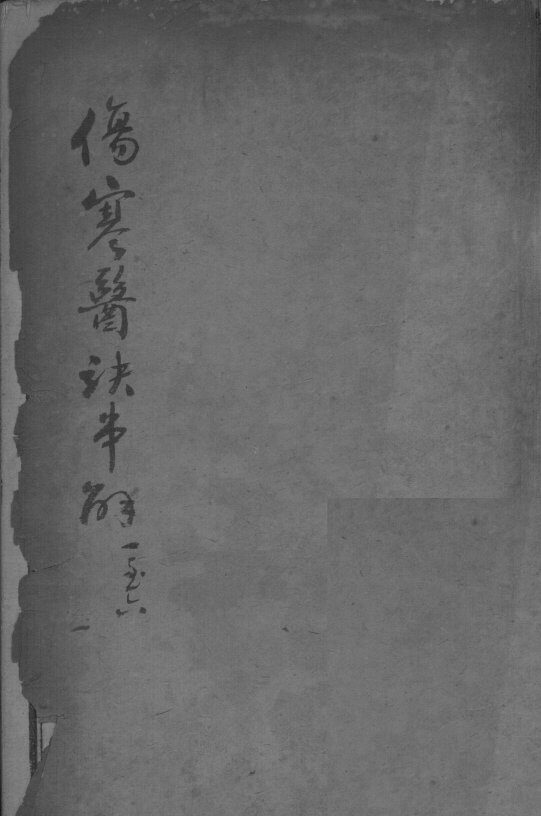 傷寒醫訣串解
一至六
一